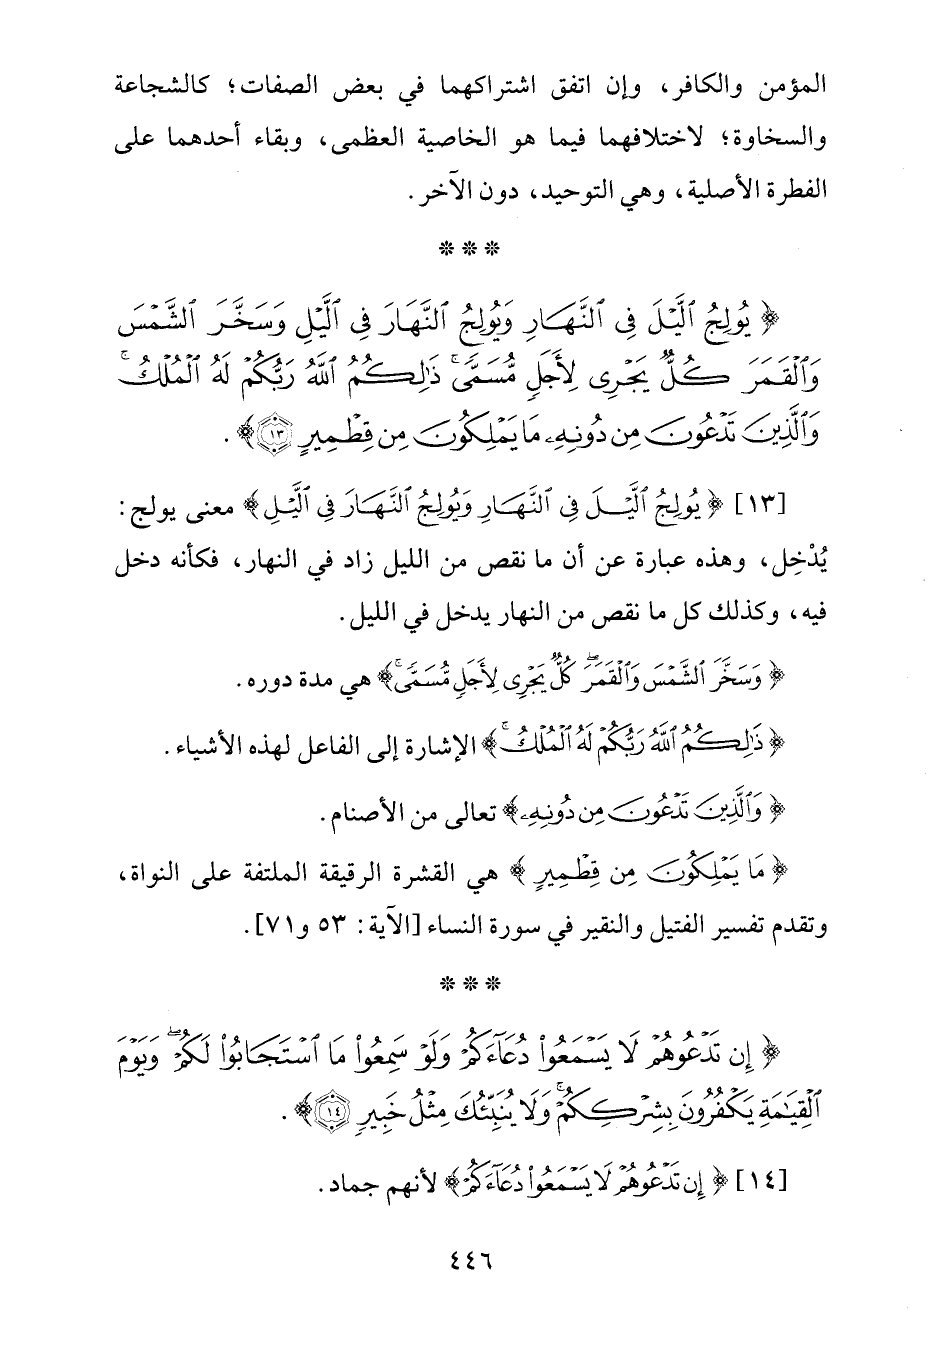 المؤمن والكافر، وإن اتفق اشتراكهما في بعض الصفات؛ كالشجاعة
والسخاوة؛ لاختلافهما فيما هو الخاصية العظمى، وبقاء أحدهما على
الفطرة الأصلية، وهي التوحيد، دون الآخر.
***
﴿يُولِجُ ٱلَّيْلَ فِى ٱلنَّهَارِ وَيُولِجُ ٱلنَّهَارَ فِى ٱلَّيْلِ وَسَخَّرَ ٱلشَّمْسَ
وَٱلْقَمَرَ كُلٌّ يَجْرِى لِأَجَلٍ مُّسَمًّى ۚ ذَٰلِكُمُ ٱللَّهُ رَبُّكُمْ لَهُ ٱلْمُلْكُ ۚ
وَٱلَّذِينَ تَدْعُونَ مِن دُونِهِۦ مَا يَمْلِكُونَ مِن قِطْمِيرٍ ١٣﴾.
[١٣] ﴿يُولِجُ ٱلَّيْلَ فِى ٱلنَّهَارِ وَيُولِجُ ٱلنَّهَارَ فِى ٱلَّيْلِ﴾ معنى يولج:
يُدْخِل، وهذه عبارة عن أن ما نقص من الليل زاد في النهار، فكأنه دخل
فيه، وكذلك كل ما نقص من النهار يدخل في الليل.
﴿وَسَخَّرَ ٱلشَّمْسَ وَٱلْقَمَرَ ۖ كُلٌّ يَجْرِى لِأَجَلٍ مُّسَمًّى ۚ﴾ هي مدة دوره.
﴿ذَٰلِكُمُ ٱللَّهُ رَبُّكُمْ لَهُ ٱلْمُلْكُ ۚ﴾ الإشارة إلى الفاعل لهذه الأشياء.
﴿وَٱلَّذِينَ تَدْعُونَ مِن دُونِهِۦ﴾ تعالى من الأصنام.
﴿مَا يَمْلِكُونَ مِن قِطْمِيرٍ﴾ هي القشرة الرقيقة الملتفة على النواة،
وتقدم تفسير الفتيل والنقير في سورة النساء [الآية: ٥٣ و٧١].
***
﴿إِن تَدْعُوهُمْ لَا يَسْمَعُوا۟ دُعَآءَكُمْ وَلَوْ سَمِعُوا۟ مَا ٱسْتَجَابُوا۟ لَكُمْ ۖ وَيَوْمَ
ٱلْقِيَٰمَةِ يَكْفُرُونَ بِشِرْكِكُمْ ۚ وَلَا يُنَبِّئُكَ مِثْلُ خَبِيرٍ ١٤﴾.
[١٤] ﴿إِن تَدْعُوهُمْ لَا يَسْمَعُوا۟ دُعَآءَكُمْ﴾ لأنهم جماد.
٤٤٦